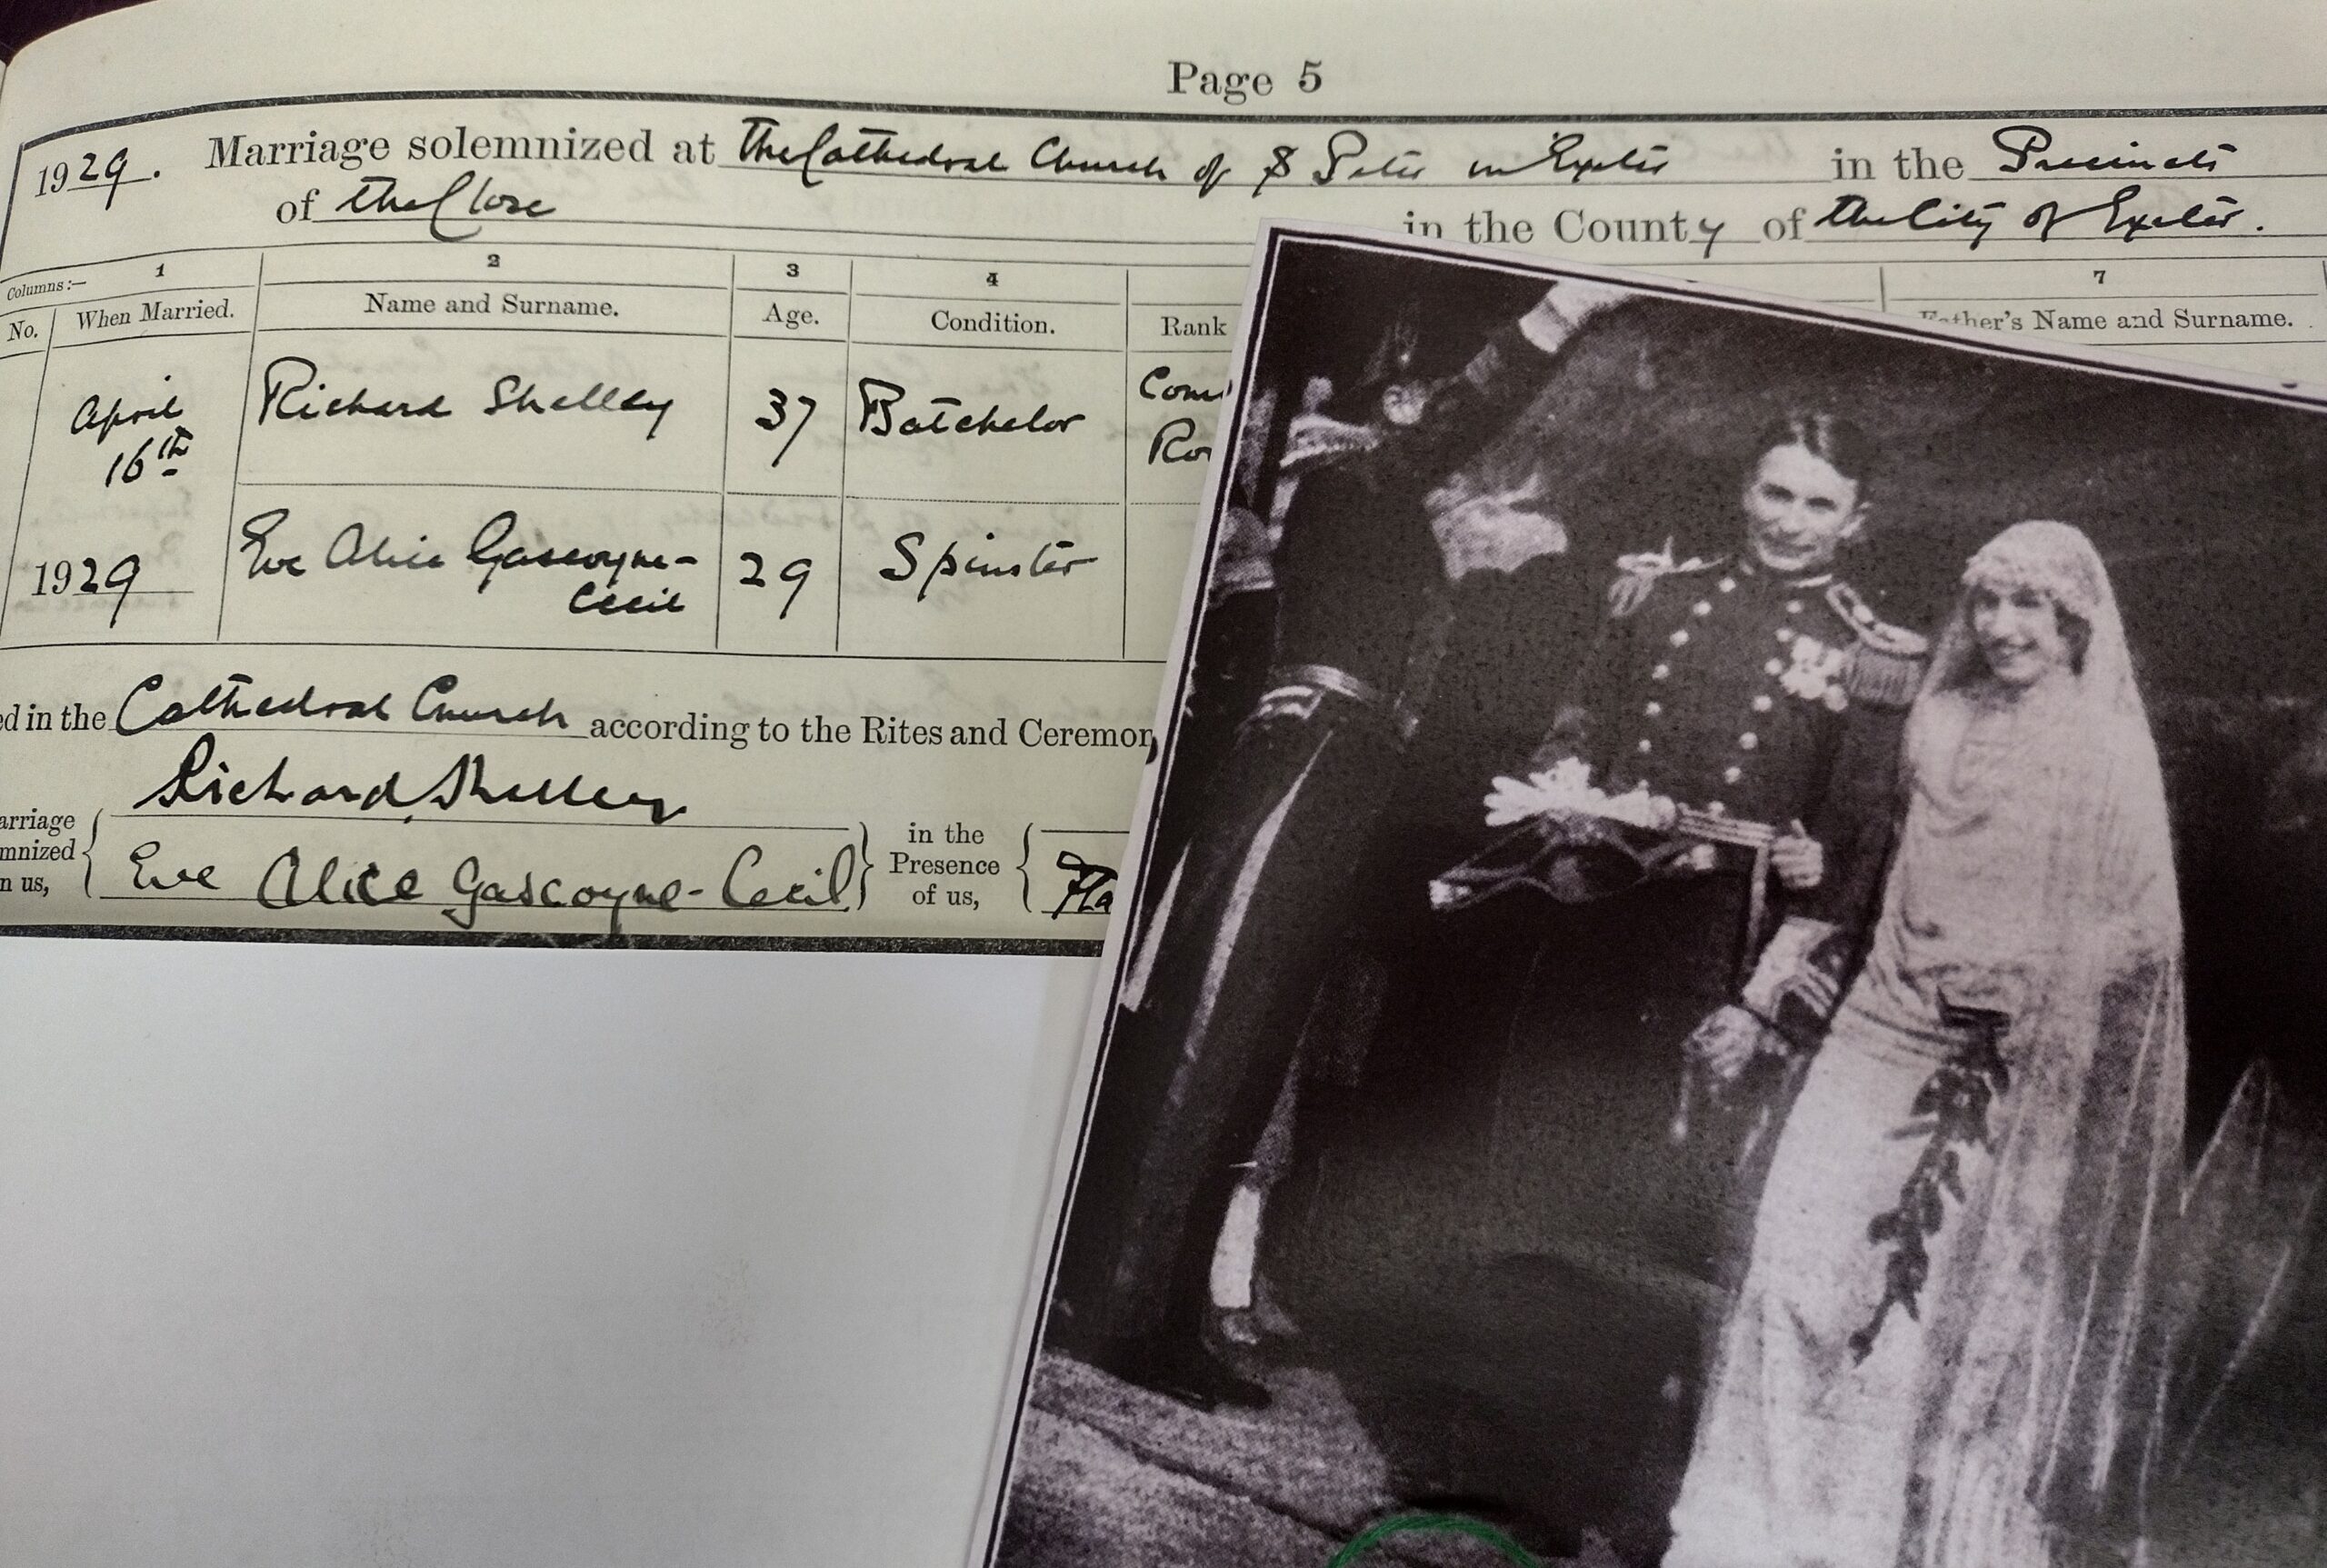 Page 5
1929. Marriage solemnized at The Cathedral Church of St Peter in Exeter in the Precincts
of the Close in the County of the City of Exeter.
Columns:— 1 2 3 4 7
No. When Married. Name and Surname. Age. Condition. Rank Father's Name and Surname.
April 16th 1929
Richard Shelley 37 Batchelor
Eve Alice Gascoyne-
Cecil 29 Spinster
ed in the Cathedral Church according to the Rites and Ceremon
Richard Shelley
arriage
mnized
n us,
Eve Alice Gascoyne-Cecil
in the
Presence
of us,